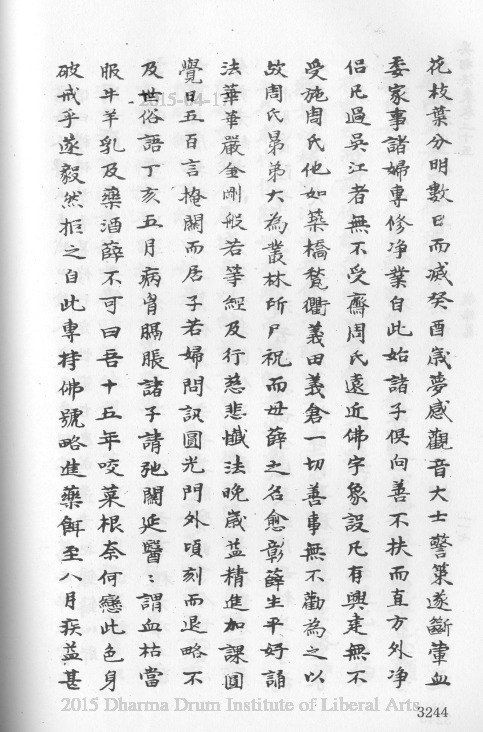 花枝葉分明數日而滅癸酉歳夢感觀音大士警策遂斷葷血
委家事諸婦專修净業自此始諸子俱向善不扶而直方外净
侣凡過吳江者無不受齋周氏遠近佛宇象設凡有興建無不
受施周氏他如築橋甃衢義田義倉一切善事無不勸為之以
故周氏昴弟大為叢林所尸祝而母薛之名愈彰薛生平好誦
法華華嚴金剛般若等經及行慈悲懺法晚歳益精進加課圓
覺日五百言掩關而居子若婦問訊圓光門外頃刻而退略不
及世俗語丁亥五月病胃膈脹諸子請弛關延醫：謂血枯當
服牛羊乳及藥酒薛不可曰吾十五年咬菜根奈何戀此色身
破戒乎遂毅然拒之自此專持佛號略進藥餌至八月疾益甚
2015-04-17
2015 Dharma Drum Institute of Liberal Arts
3244